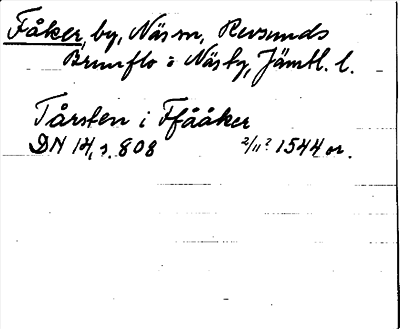 Fåker, by, Näs sn, Revsunds
Brunflo o Näs tg, Jämtl. l.
Tårsten i Ffååker
DN 14, s. 808 2/11? 1544 or.